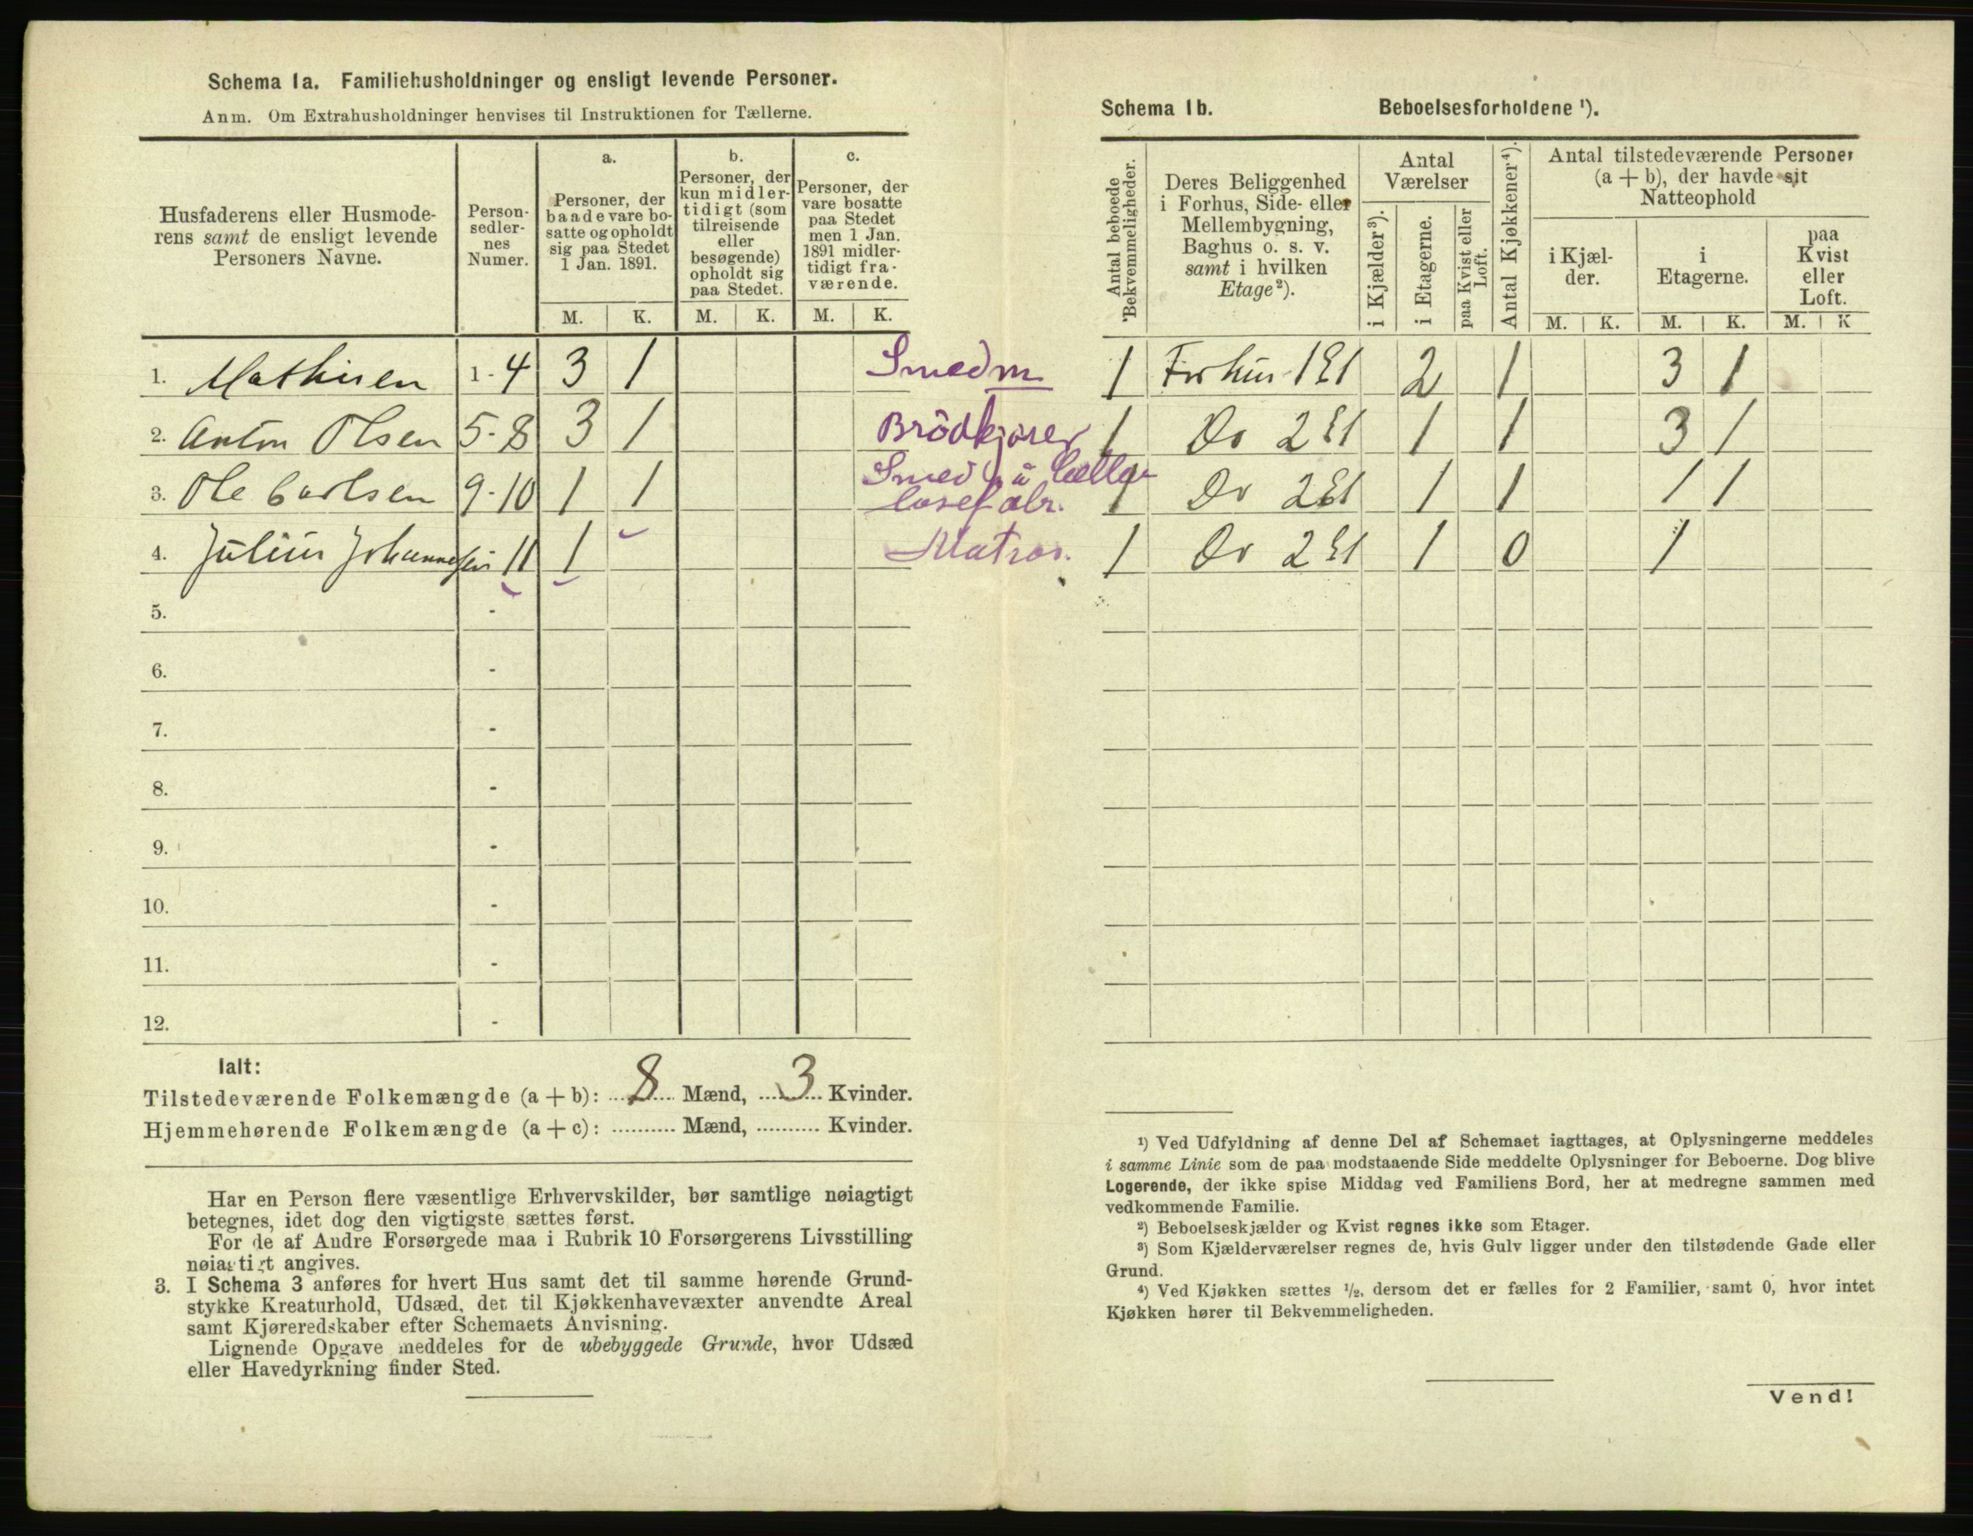 Schema 1a. Familiehusholdninger og ensligt levende Personer.
Anm. Om Extrahusholdninger henvises til Instruktionen for Tællerne.
Husfaderens eller Husmode-
rens samt de ensligt levende
Personers Navne.
Person-
sedler-
nes
Numer.
a.
Personer, der
baade vare bo-
satte og opholdt
sig paa Stedet
1 Jan. 1891.
b.
Personer, der
kun midler-
tidigt (som
tilreisende
eller
besøgende)
opholdt sig
paa Stedet.
c.
Personer, der
vare bosatte
paa Stedet
men 1 Jan.
1891 midler-
tidigt fra-
værende.
M. K. M. K. M. K.
1. Mathisen 1-4 3 1 Smedm
2. Anton Olsen 5-8 3 1 Brödkjører
3. Ole Carlsen 9-10 1 1 Smed
4. Julius Johannesen 11 1 Matros.
5. -
6. -
7. -
8. -
9. -
10. -
11. -
12. -
Ialt:
Tilstedeværende Folkemængde (a + b): 8 Mænd, 3 Kvinder.
Hjemmehørende Folkemængde (a + c): .......... Mænd, .......... Kvinder.
Har en Person flere væsentlige Erhvervskilder, bør samtlige nøiagtigt
betegnes, idet dog den vigtigste sættes først.
For de af Andre Forsørgede maa i Rubrik 10 Forsørgerens Livsstilling
nøiagtigt angives.
3. I Schema 3 anføres for hvert Hus samt det til samme hørende Grund-
stykke Kreaturhold, Udsæd, det til Kjøkkenhavevæxter anvendte Areal
samt Kjøreredskaber efter Schemaets Anvisning.
Lignende Opgave meddeles for de ubebyggede Grunde, hvor Udsæd
eller Havedyrkning finder Sted.
Schema 1b. Beboelsesforholdene ¹).
Antal beboede
Bekvemmeligheder.
Deres Beliggenhed
i Forhus, Side- eller
Mellembygning,
Baghus o. s. v.
samt i hvilken
Etage²).
Antal
Værelser
i Kjælder³).
i Etagerne.
paa Kvist eller
Loft.
Antal Kjøkkener⁴).
Antal tilstedeværende Personer
(a + b), der havde sit
Natteophold
i Kjæl-
der.
i
Etagerne.
paa
Kvist
eller
Loft.
M. K. M. K. M. K
1 Forhus 1 Et 2 1 3 1
1 Do 2 Et 1 1 3 1
1 Do 2 Et 1 1 1 1
1 Do 2 Et 1 0 1
¹) Ved Udfyldning af denne Del af Schemaet iagttages, at Oplysningerne meddeles
i samme Linie som de paa modstaaende Side meddelte Oplysninger for Beboerne. Dog blive
Logerende, der ikke spise Middag ved Familiens Bord, her at medregne sammen med
vedkommende Familie.
²) Beboelseskjælder og Kvist regnes ikke som Etager.
³) Som Kjælderværelser regnes de, hvis Gulv ligger under den tilstødende Gade eller
Grund.
⁴) Ved Kjøkken sættes ¹/₂, dersom det er fælles for 2 Familier, samt 0, hvor intet
Kjøkken hører til Bekvemmeligheden.
Vend!